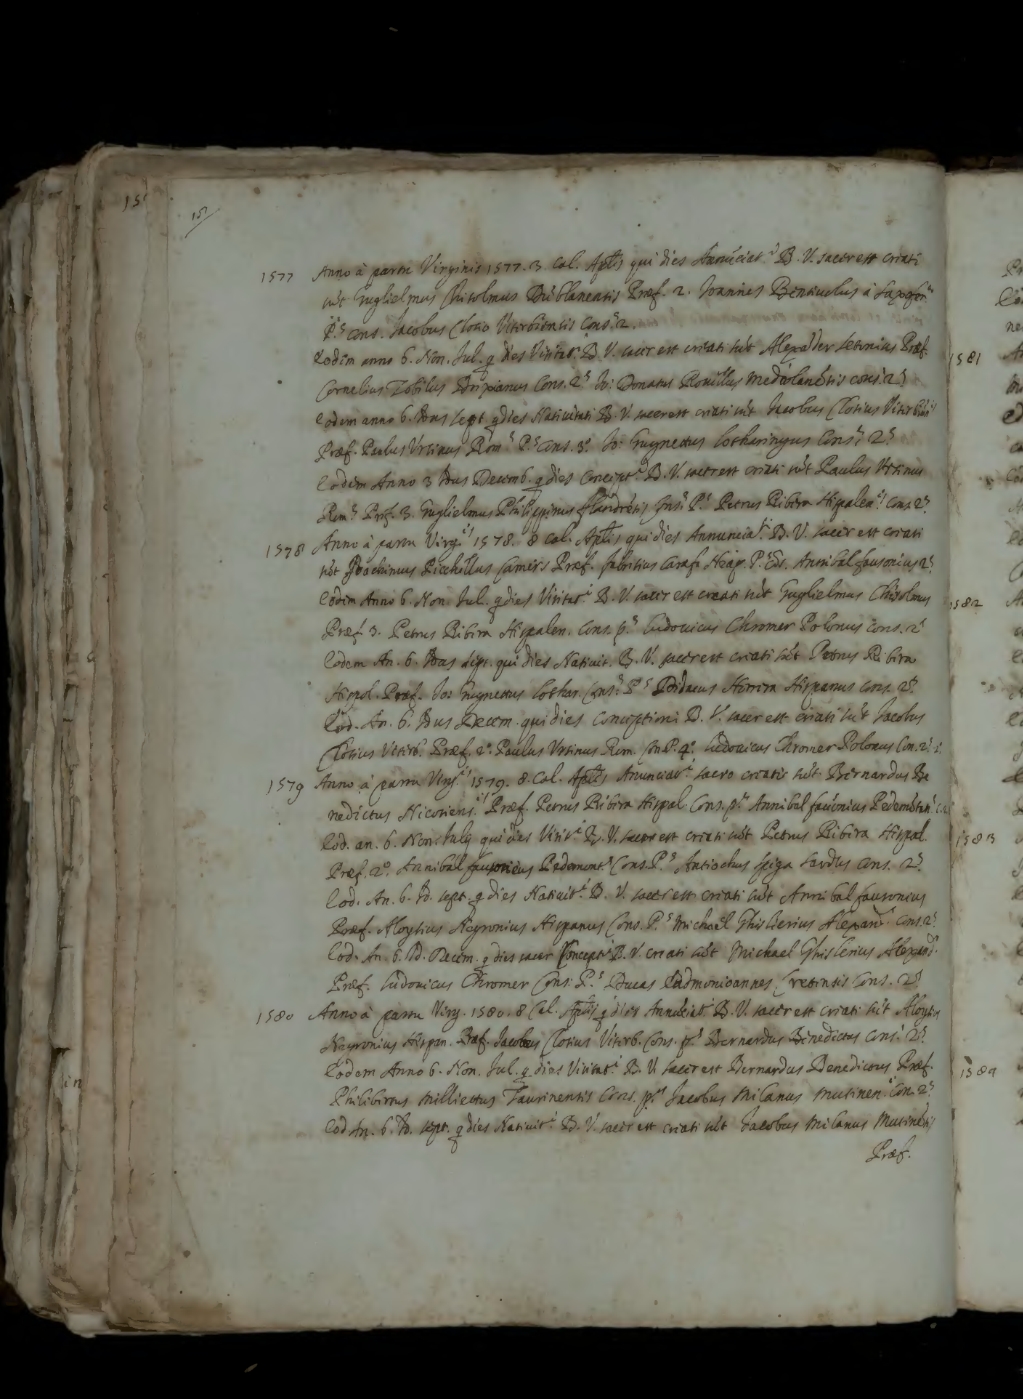 151
1577 Anno à partu Virginis 1577. 8 Cal. Aplis qui dies Annuciat. B. V. sacer est criati
sut Guglielmus Chisolmus Dublanensis Præf. 2. Ioannes Bentiuolus à Saxofer.
Ps cons. Iacobus Clotio Viterbiensis Cons. 2.
Eodem anno 6. Non. Jul. q dies Visitat. B. V. sacer est criati sut Alexander Præf.
Cornelius Cons. 2s Io: Donatus Mediolanesis cons. 2s
Eodem anno 6. Idus Sept. q dies Nativitati B. V. sacer est criati sut Iacobus Clotius Viterbiesis
Præf. Paulus Vrsinus Roms Ps Cons. 3. Io: Guynectus Lotharingus Cons. 2s
Eodem Anno 3 Idus Decemb. q dies Concept. B. V. sacer est criati sut Paulus Vrsinus
Roms Præf. 3. Guglielmus Philippinus Flandresis Cons. Ps Petrus Ribira Hispalen. Cons. 2s
1578 Anno à partu Virg. 1578. 8 Cal. Aplis qui dies Annuncia. B. V. sacer est criati
sut Ioachimus Picchollus Camers Præf. Fabritius Carafa Neap. Ps Cos. Annibal fauonius 2s
Eodem Anno 6. Non. Jul. q dies Visitat. B. V. sacer est creati sut Guglielmus Chisolmus
Præf 3. Petrus Ribira Hispalen. Cons. ps Ludouicus Chromer Polonus Cons. 2s
Eodem An. 6. Idus Sept. qui dies Nativit. B. V. sacer est criati sut Petrus Ribira
Hispal. Præf. Io: Guynectus Lothar. Cons. Ps Didacus Herrera Hispanus Cons. 2s
Eod. An. 6. Idus Decem. qui dies Conceptioni B. V. sacer est criati sut Iacobus
Clotius Viterb. Præf. 2o. Paulus Vrsinus Rom. Con P. 4o. Ludouicus Chromer Polonus Con. 2s
1579 Anno à partu Virg. 1579. 8. Cal. Aplis Anunciat. sacro creati sut Bernardus Be
nedictus Præf. Petrus Ribira Hispal Cons. ps Annibal Pedemotan. C. 2
Eod. an. 6. Non. July qui dies Visit. B. V. sacer est criati sut Petrus Ribira Hispal.
Præf. 2o. Annibal Pedemont. Cons. Ps Antiochus Sardus Cons. 2s
Eod. An. 6. Id. Sept. q dies Nativit. B. V. sacer est criati sut Annibal fausonius
Præf. Aloysius Neyronius Hispanus Cons. Ps Michael Ghislierius Alexan. Cons. 2s
Eod. An. 6. Id. Decem. q dies sacer Concept. B. V. criati sut Michael Ghislerius Alexand.
Præf. Ludouicus Chromer Cons. Ps Ducas Cretensis Cons. 2s
1580 Anno à partu Virg. 1580. 8 Cal. Aplis q dies Annuciat. B. V. sacer est criati sut Aloysius
Neyronius Hispan. Præf. Iacobus Clotius Viterb. Cons. ps Bernardus Benedictus Cons. 2s
Eodem Anno 6. Non. Jul. q dies Visitat. B. V. sacer est Bernardus Benedictus Præf.
Philibirtus Milliettus Taurinensis Cons. ps Iacobus Milanus Mutinen. Con. 2s
Eod An. 6. Id. Sept. q dies Nativit. B. V. sacer est criati sut Iacobus Milanus Mutinesis
Præf.
1581
1582
1583
1584